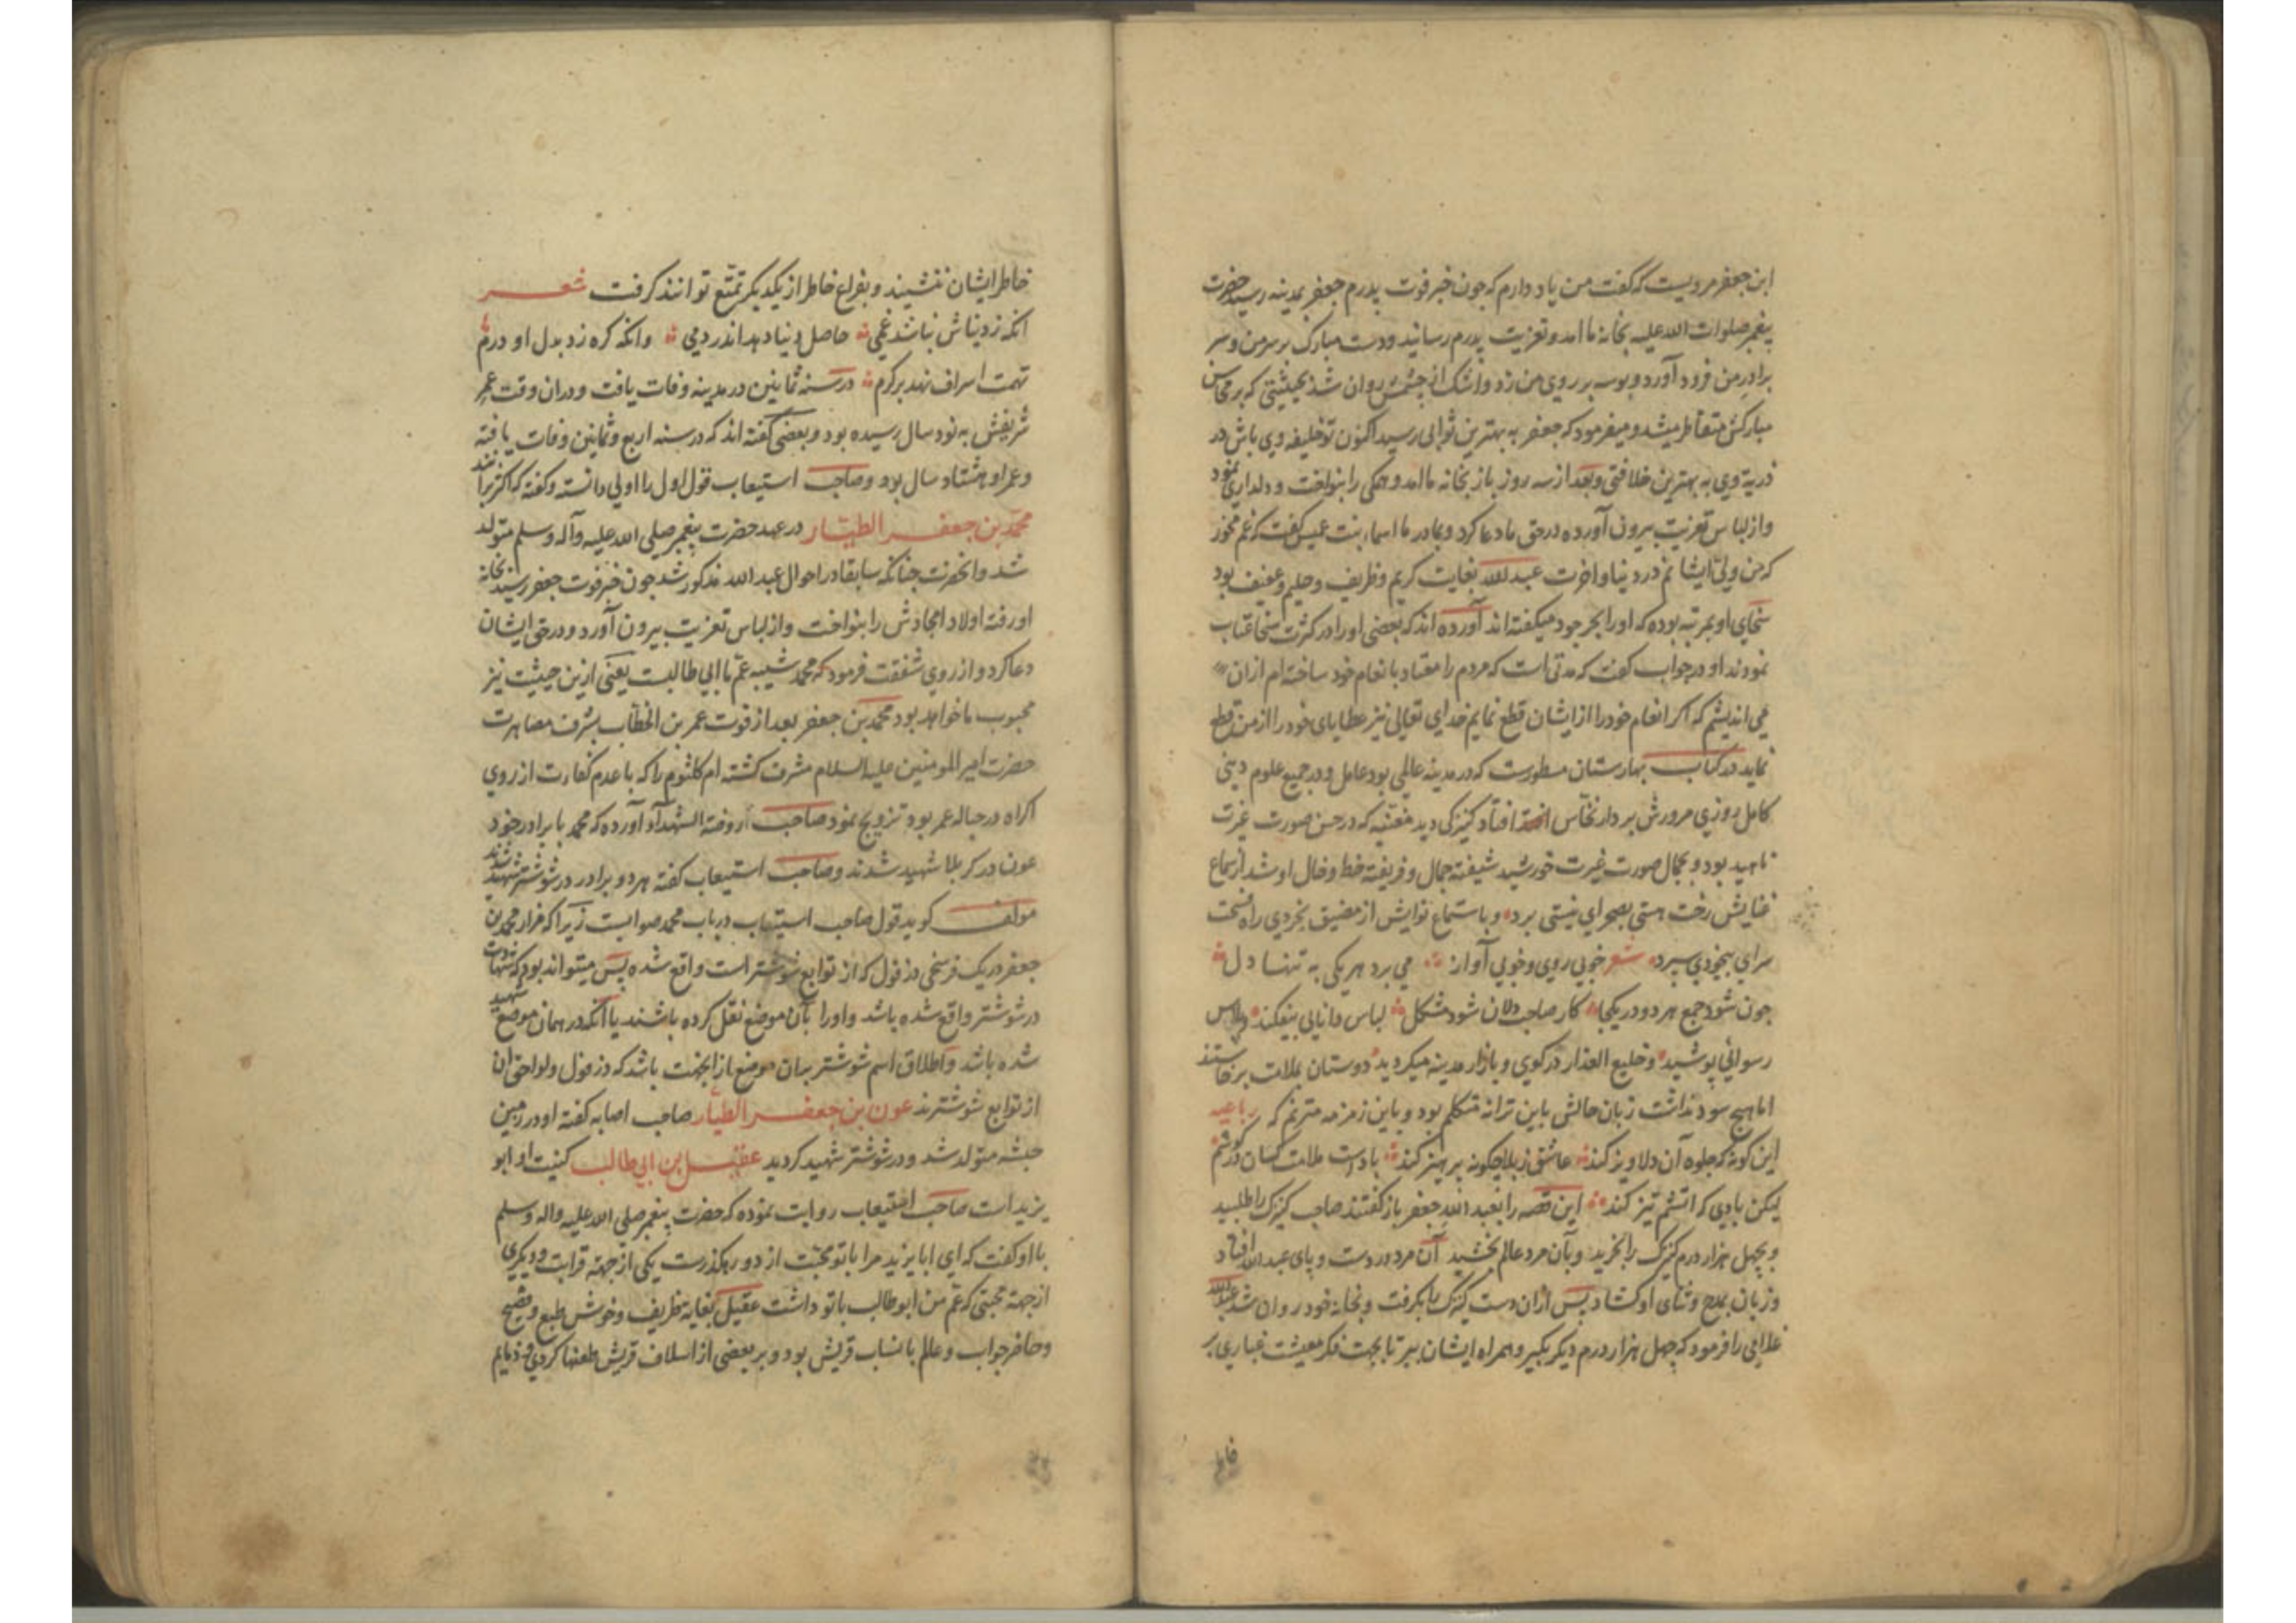 ابن جعفر مرویست که گفت من یاد دارم که چون خبر فوت پدرم جعفر بمدینه رسید حضرت
پیغمبر صلوات الله علیه بخانه ما امد و تعزیت پدرم رسانید و دست مبارک بر سر من و سر
برادر من فرود آورد و بوسه بر روی من زد و اشک از چشمش روان شد بحیثیتی که بر محاسن
مبارکش متقاطر میشد و میفرمود که جعفر به بهترین ثوابی رسید اکنون تو خلیفه وی باش در
ذریة وی به بهترین خلافتی و بعد از سه روز باز بخانه ما امد و همکی را بنواخت و دلداری نمود
و از لباس تعزیت بیرون آورده در حق ما دعا کرد و بمادر ما اسماء بنت عمیس گفت که غم مخور
که من ولی ایشانم در دنیا و اخرت عبد الله بغایت کریم و ظریف و حلیم و عفیف بود
سخای او بمرتبه بوده که او را بحر جود میکفته اند آورده اند که بعضی او را در کثرت سخا عتاب
نمودند او در جواب گفت که مدتی است که مردم را معتاد بانعام خود ساخته ام از ان
می اندیشم که اکر انعام خود را از ایشان قطع نمایم خدای تعالی نیز عطایای خود را از من قطع
نماید در کتاب بهارستان مسطورست که در مدینه عالمی بود عامل و در جمیع علوم دینی
کامل روزی مرورش بر دار نخاس افتاد کنیزکی دید مغنیه که در حسن صورت غیرت
ناهید بود و بجمال صورت غیرت خورشید شیفته جمال و فریفته خط و خال او شد از سماع
غنایش رخت هستی بصحرای نیستی برد و باستماع نوایش از مضیق بخردی راه فسحت
سرای بیخودی سپرد شعر خوبی روی و خوبی آواز می برد هر یکی به تنها دل
چون شود جمع هر دو در یکجا کار صاحب دلان شود مشکل لباس دانایی بیفکند و پلاس
رسوائی پوشید و خلیع العذار در کوی و بازار مدینه میکردید دوستان بملامت برخاستند
اما هیچ سود نداشت زبان حالش باین ترانه متکلم بود و باین زمزمه مترنم که رباعیه
این کونه که جلوه آن دلاویز کند عاشق ز بلا چکونه پرهیز کند باد است ملامت کسان در کوشم
لیکن بادی که اتشم تیز کند این قصه را بعبد الله جعفر باز گفتند صاحب کنیزک را طلبید
و بچهل هزار درم کنیزک را بخرید و بآن مرد عالم بخشید آن مرد در دست و پای عبد الله افتاد
و زبان بمدح و ثنای او کشاد پس ازان دست کنیزک را بکرفت و بخانه خود روان شد عبد الله
غلامی را فرمود که چهل هزار درم دیکر بکیر و همراه ایشان ببر تا بجهت فکر معیشت غباری بر
خاطر ایشان ننشیند و بفراغ خاطر از یکدیکر تمتع توانند کرفت شعر
انکه ز دنیاش نباشد غمی حاصل دنیا دهد اندر دمی وانکه کره زد بدل او درم
تهمت اسراف نهد بر کرم در سنه ثمانین در مدینه وفات یافت و دران وقت عمر
شریفش به نود سال رسیده بود و بعضی کفته اند که در سنه اربع و ثمانین وفات یافته
و عمر او هشتاد سال بود و صاحب استیعاب قول اول را اولی دانسته و کفته که اکثر برانند
محمد بن جعفر الطیار در عهد حضرت پیغمبر صلی الله علیه وآله وسلم متولد
شد و انحضرت چنانکه سابقا در احوال عبد الله مذکور شد چون خبر فوت جعفر رسید بخانه
او رفته اولاد امجادش را بنواخت و از لباس تعزیت بیرون آورد و در حق ایشان
دعا کرد و از روی شفقت فرمود که محمد شبیه عم ما ابی طالبست یعنی ازین حیثیت نیز
محبوب ما خواهد بود محمد بن جعفر بعد از فوت عمر بن الخطاب بشرف مصاهرت
حضرت امیر المومنین علیه السلام مشرف کشته ام کلثوم را که با عدم کفائت از روی
اکراه در حباله عمر بود تزویج نمود صاحب روضة الشهداء آورده که محمد با برادر خود
عون در کربلا شهید شدند و صاحب استیعاب کفته هر دو برادر در شوشتر شهید شدند
مولف کوید قول صاحب استیعاب در باب محمد صوابست زیرا که مزار محمد بن
جعفر در یک فرسخی دزفول که از توابع شوشتر است واقع شده پس میتواند بود که شهادت
در شوشتر واقع شده باشد و او را بآن موضع نقل کرده باشند یا آنکه در همان موضع شهید
شده باشد و اطلاق اسم شوشتر بران موضع ازانجهت باشد که دزفول و لواحق ان
از توابع شوشترند عون بن جعفر الطیار صاحب اصابه کفته او در زمین
حبشه متولد شد و در شوشتر شهید کردید عقیل بن ابی طالب کنیت او ابو
یزید است صاحب استیعاب روایت نموده که حضرت پیغمبر صلی الله علیه واله وسلم
با او کفت که ای ابا یزید مرا با تو محبت از دو رهکذرست یکی از جهة قرابت و دیکری
از جهة محبتی که عم من ابو طالب با تو داشت عقیل بغایة ظریف و خوش طبع و فصیح
و حاضر جواب و عالم بانساب قریش بود و بر بعضی از اسلاف قریش طعنها کردی و ذمایم